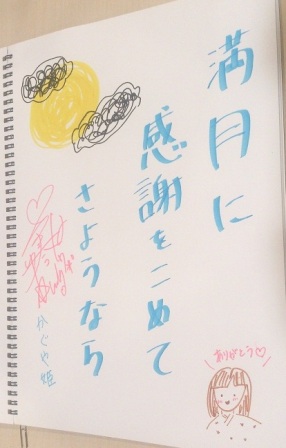 満月に
感謝をこめて
さようなら
かぐや姫
ありがとう♡